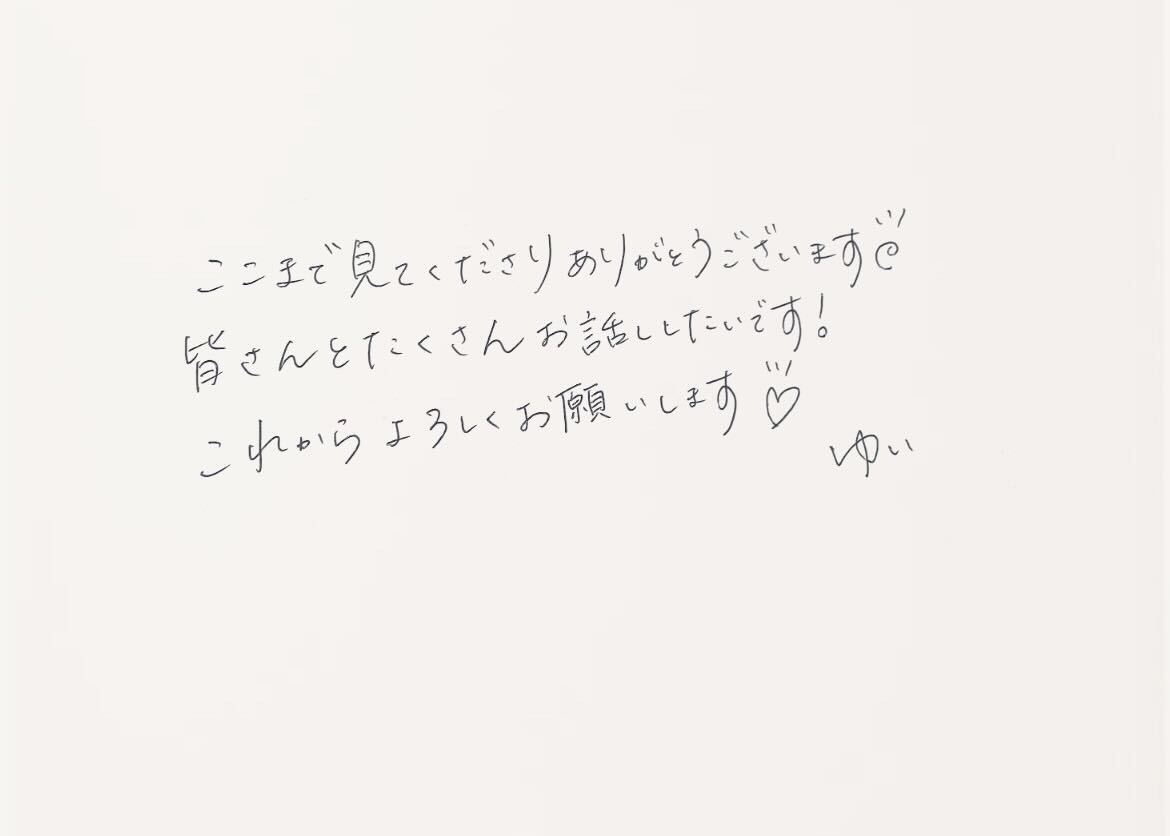 ここまで見てくださりありがとうございます
皆さんとたくさんお話ししたいです!
これからよろしくお願いします♡
ゆい